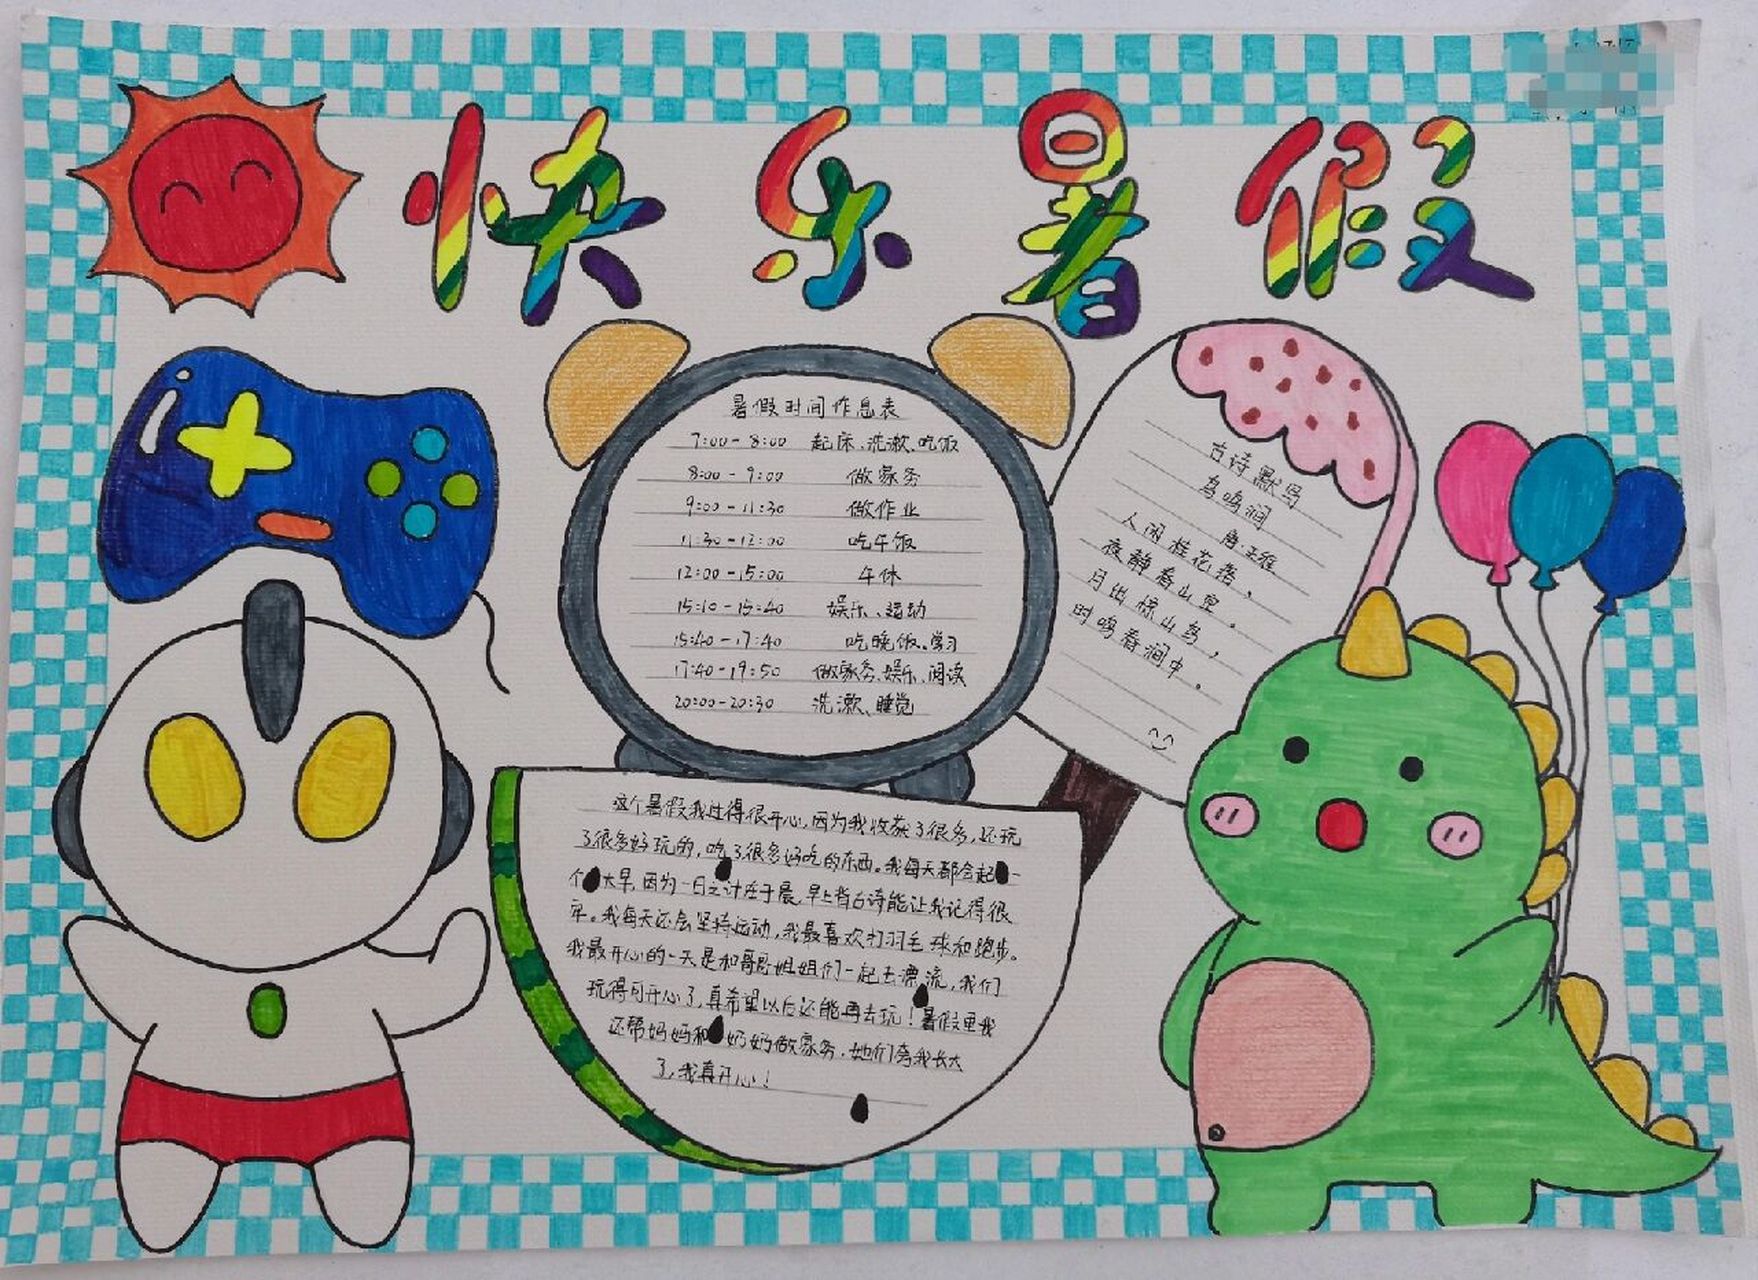 快乐暑假
暑假时间作息表
7:00-8:00 起床、洗漱、吃饭
8:00-9:00 做家务
9:00-11:30 做作业
11:30-12:00 吃午饭
12:00-15:00 午休
15:10-15:40 娱乐、运动
15:40-17:40 吃晚饭、学习
17:40-19:50 做家务、娱乐、阅读
20:00-20:30 洗漱、睡觉
古诗默写
鸟鸣涧
唐·王维
人闲桂花落，
夜静春山空。
月出惊山鸟，
时鸣春涧中。
这个暑假我过得很开心,因为我收获了很多,还玩
了很多好玩的,吃了很多好吃的东西。我每天都会起一
个大早,因为一日之计在于晨,早上背古诗能让我记得很
牢。我每天还会坚持运动,我最喜欢打羽毛球和跑步。
我最开心的一天是和哥哥姐姐们一起去漂流,我们
玩得可开心了,真希望以后还能再去玩!暑假里我
还帮妈妈和奶奶做家务,她们夸我长大
了,我真开心!